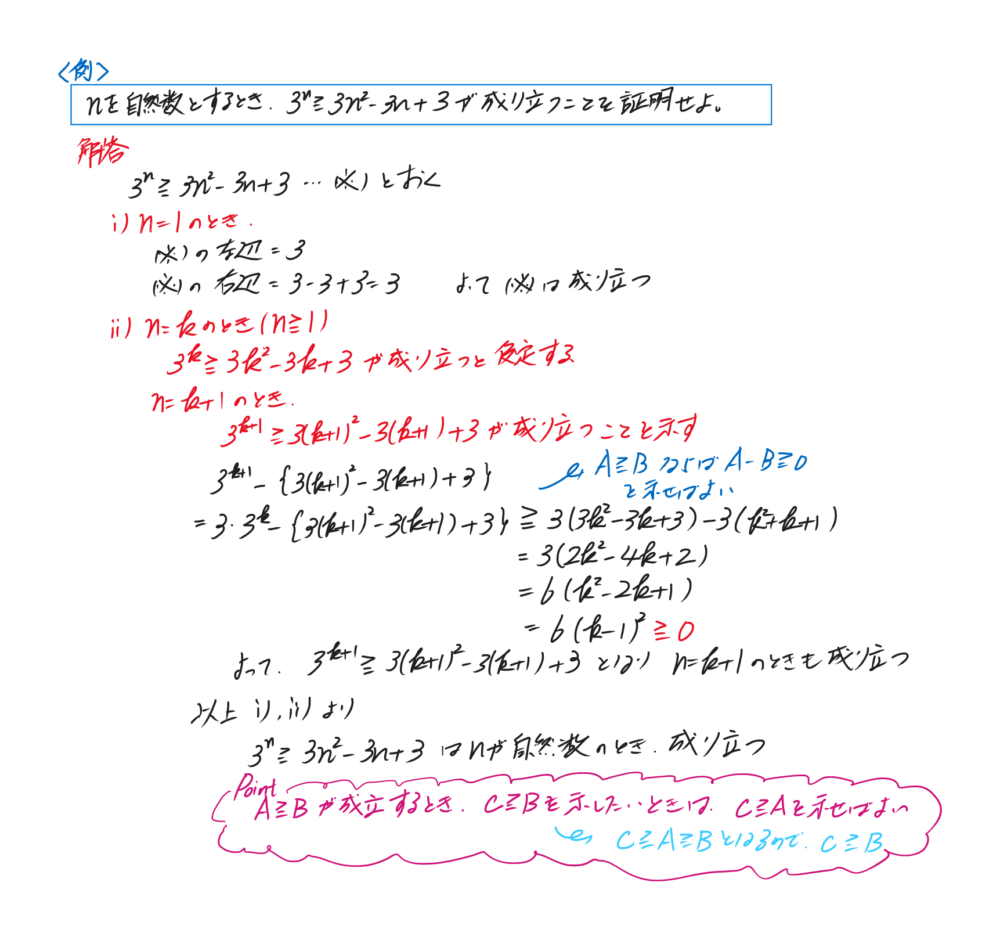 <例>
nを自然数とするとき. 3ⁿ≧3n²-3n+3が成り立つことを証明せよ。
解答
3ⁿ≧3n²-3n+3 …(※)とおく
i) n=1のとき.
(※)の左辺=3
(※)の右辺=3-3+3=3 よって(※)は成り立つ
ii) n=kのとき(n≧1)
3ᵏ≧3k²-3k+3が成り立つと仮定する
n=k+1のとき.
3ᵏ⁺¹≧3(k+1)²-3(k+1)+3が成り立つことを示す
3ᵏ⁺¹-{3(k+1)²-3(k+1)+3}
A≧BならばA-B≧0
を示せばよい
=3・3ᵏ-{3(k+1)²-3(k+1)+3}≧3(3k²-3k+3)-3(k²+k+1)
=3(2k²-4k+2)
=6(k²-2k+1)
=6(k-1)²≧0
よって. 3ᵏ⁺¹≧3(k+1)²-3(k+1)+3となり n=k+1のときも成り立つ
以上 i),ii)より
3ⁿ≧3n²-3n+3はnが自然数のとき.成り立つ
Point
A≧Bが成立するとき. C≧Bを示したいときは. C≧Aを示せばよい
C≧A≧Bとなるので. C≧B